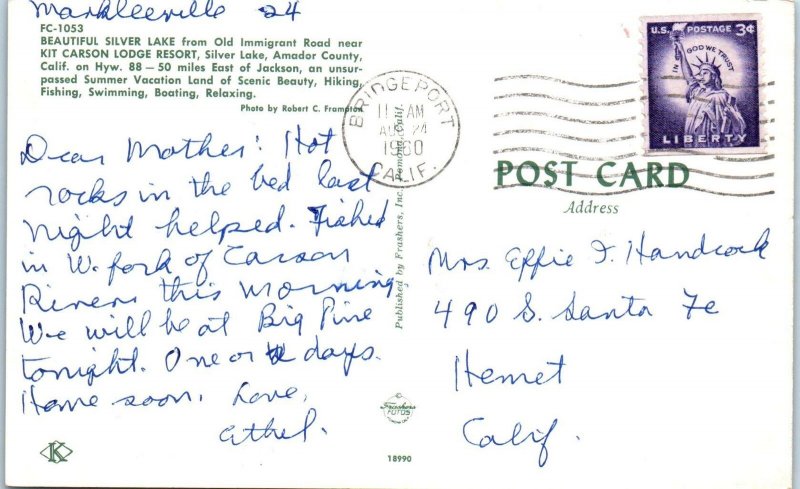 Markleeville 24
FC-1053
BEAUTIFUL SILVER LAKE from Old Immigrant Road near
KIT CARSON LODGE RESORT, Silver Lake, Amador County,
Calif. on Hyw. 88 — 50 miles East of Jackson, an unsur-
passed Summer Vacation Land of Scenic Beauty, Hiking,
Fishing, Swimming, Boating, Relaxing.
Photo by Robert C. Frampton
Dear Mother: Hot
rocks in the bed last
night helped. Fished
in W. fork of Carson
River this morning.
We will be at Big Pine
tonight. One or days.
Home soon. Love,
Ethel.
K
Published by Frashers, Inc., Pomona, Calif.
Frashers
FOTOS
18990
BRIDGEPORT
11 AM
AUG 24
1960
CALIF.
U.S. POSTAGE 3¢
IN GOD WE TRUST
LIBERTY
POST CARD
Address
Mrs. Effie F. Handcock
490 S. Santa Fe
Hemet
Calif.